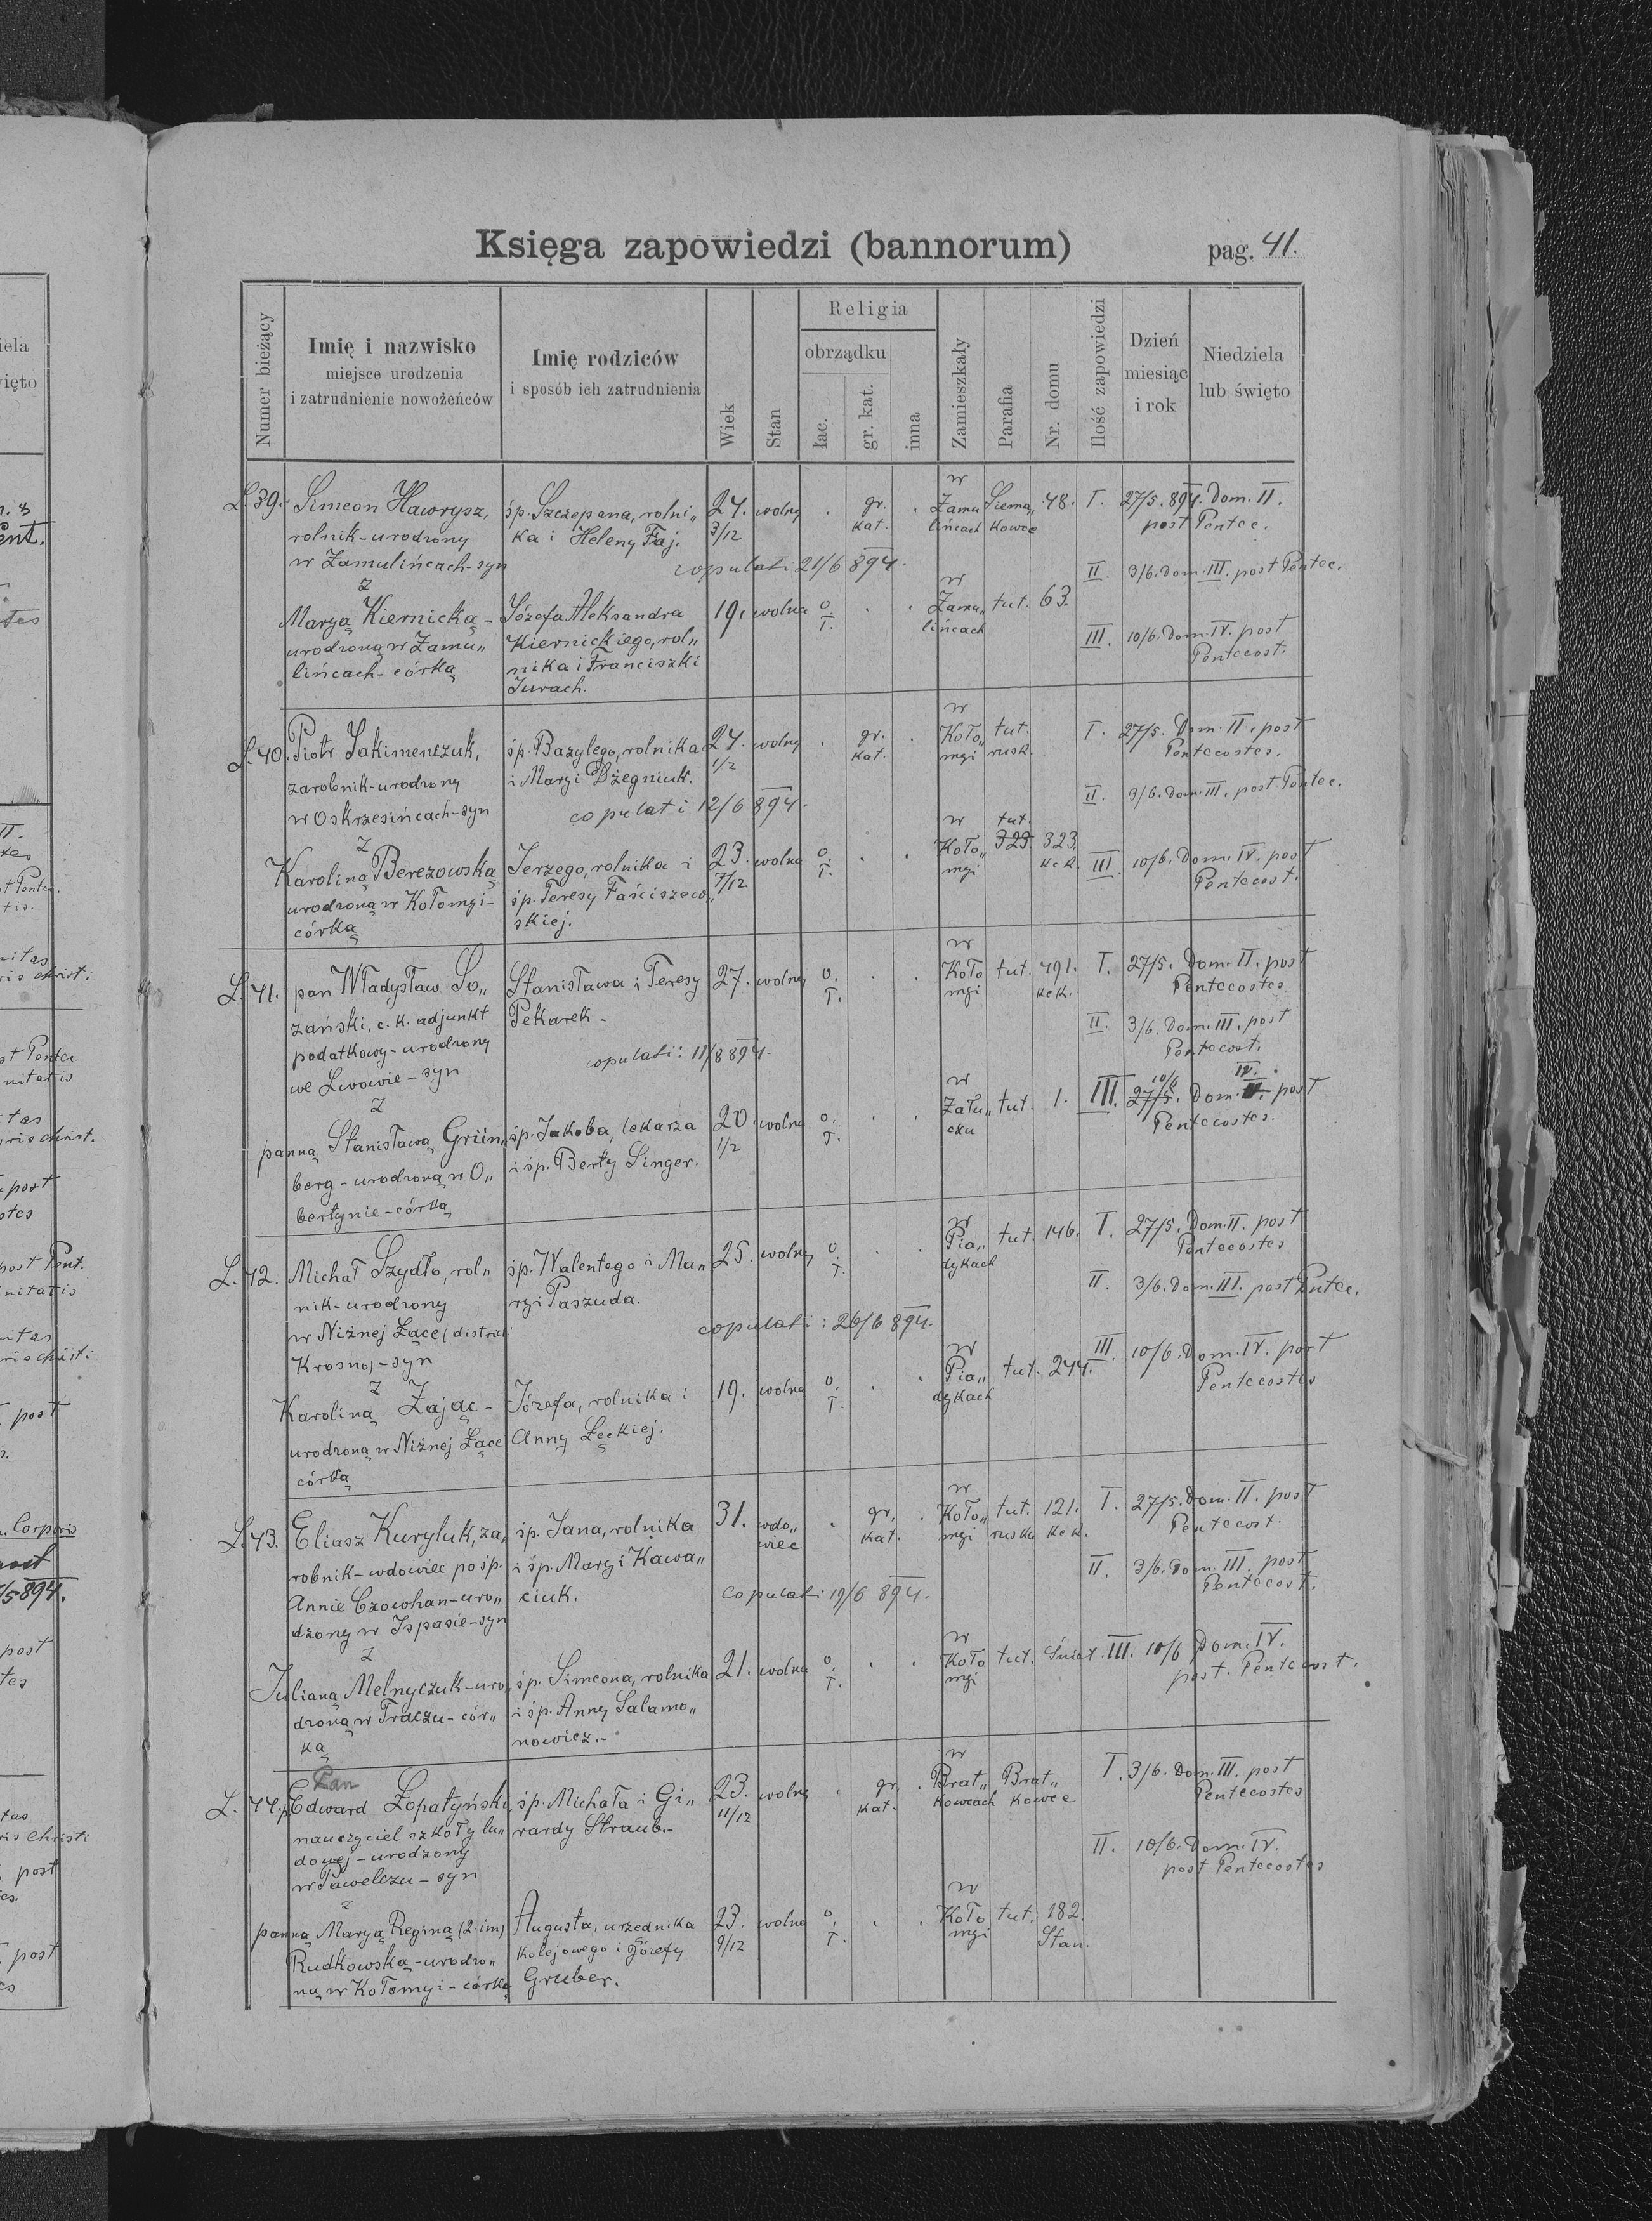 Księga zapowiedzi (bannorum)
pag. 41.
Numer bieżący
Imię i nazwisko
miejsce urodzenia
i zatrudnienie nowożeńców
Imię rodziców
i sposób ich zatrudnienia
Wiek
Stan
Religia
obrządku
łac.
gr. kat.
inna
Zamieszkały
Parafia
Nr. domu
Ilość zapowiedzi
Dzień
miesiąc
i rok
Niedziela
lub święto
L. 39. Simeon Hawrysz,
rolnik - urodzony
w Zamulińcach - syn
z
Maryą Kiernicką -
urodzoną w Zamu„
lińcach - córką
śp. Szczepana, rolni„
ka i Heleny Faj.
copulati 21/6 894.
Józefa Aleksandra
Kiernickiego, rol„
nika i Franciszki
Jurach.
24. 3/12
wolny . gr. kat. .
w Zamu lińcach
Siema„ kowce
48.
19. wolna o. ł. . .
w Zamu„ lińcach
tut. 63.
I. 27/5. 894. Dom. II.
post Pentec.
II. 3/6. Dom. III. post Pentec.
III. 10/6. Dom. IV. post
Pentecost.
L. 40. Piotr Jakimenczuk,
zarobnik - urodzony
w Oskrzesińcach - syn
z
Karoliną Berezowską
urodzoną w Kołomyi -
córką
śp. Bazylego, rolnika
i Maryi Dżegniuk.
copulati 12/6 894.
Jerzego, rolnika i
śp. Teresy Faściszew„
skiej.
24. 1/2
wolny . gr. kat. .
w Koło„ myi
tut. rusk.
23. 7/12
wolna o. ł. . .
w Koło„ myi
tut. 323 323. kek.
I. 27/5. Dom. II. post
Pentecostes.
II. 3/6. Dom. III. post Pentec.
III. 10/6. Dom. IV. post
Pentecost.
L. 41. pan Władysław So„
zański, c. k. adjunkt
podatkowy - urodzony
we Lwowie - syn
z
panną Stanisławą Grün„
berg - urodzoną w O„
bertynie - córką
Stanisława i Teresy
Pekarek -
copulati: 11/8 894.
śp. Jakoba, lekarza
i śp. Berty Singer.
27. wolny o. ł. . .
w Koło myi
tut. 491. kek.
20. 1/2
wolna o. ł. . .
w Zału„ czu
tut. 1.
I. 27/5. Dom. II. post
Pentecostes.
II. 3/6. Dom. III. post
Pentecost.
III. 10/6 27/5. Dom. IV. post
Pentecostes.
L. 42. Michał Szydło, rol„
nik - urodzony
w Niżnej Łące (district
Krosno) - syn
z
Karoliną Zając -
urodzoną w Niżnej Łące
córką
śp. Walentego i Ma„
ryi Paszuda.
copulati: 26/6 894.
Józefa, rolnika i
Anny Łęckiej.
25. wolny o. ł. . .
w Pia„ dykach
tut. 146.
19. wolna o. ł. . .
w Pia„ dykach
tut. 244.
I. 27/5. Dom. II. post
Pentecostes
II. 3/6. Dom. III. post Pentec.
III. 10/6. Dom. IV. post
Pentecostes
L. 43. Eliasz Kuryluk, za„
robnik - wdowiec po śp.
Annie Czowhan - uro„
dzony w Ispasie - syn
z
Julianą Melnyczuk - uro„
dzoną w Traczu - cór„
ką
śp. Jana, rolnika
i śp. Maryi Kawa„
ciuk.
copulati 19/6 894.
śp. Simeona, rolnika
i śp. Anny Salamo„
nowicz. -
31. wdo„ wiec . gr. kat. .
w Koło„ myi
tut. rusk. 121. kek.
21. wolna o. ł. . .
w Koło myi
tut. Śniat.
I. 27/5. Dom. II. post
Pentecost.
II. 3/6. Dom. III. post
Pentecost.
III. 10/6 Dom. IV.
post. Pentecost.
L. 44. Pan
Edward Łopatyński,
nauczyciel szkoły lu„
dowej - urodzony
w Pawelczu - syn
z
panną Maryą Reginą (2. im)
Rudkowską - urodzo„
ną w Kołomyi - córką
śp. Michała i Gi„
rardy Straub. -
Augusta, urzędnika
kolejowego i Józefy
Gruber.
23. 11/12
wolny . gr. kat. .
w Brat„ kowcach
Brat„ kowce
23. 9/12
wolna o. ł. . .
w Koło myi
tut. 182. Stan.
I. 3/6. Dom. III. post
Pentecostes
II. 10/6. Dom. IV.
post Pentecostes